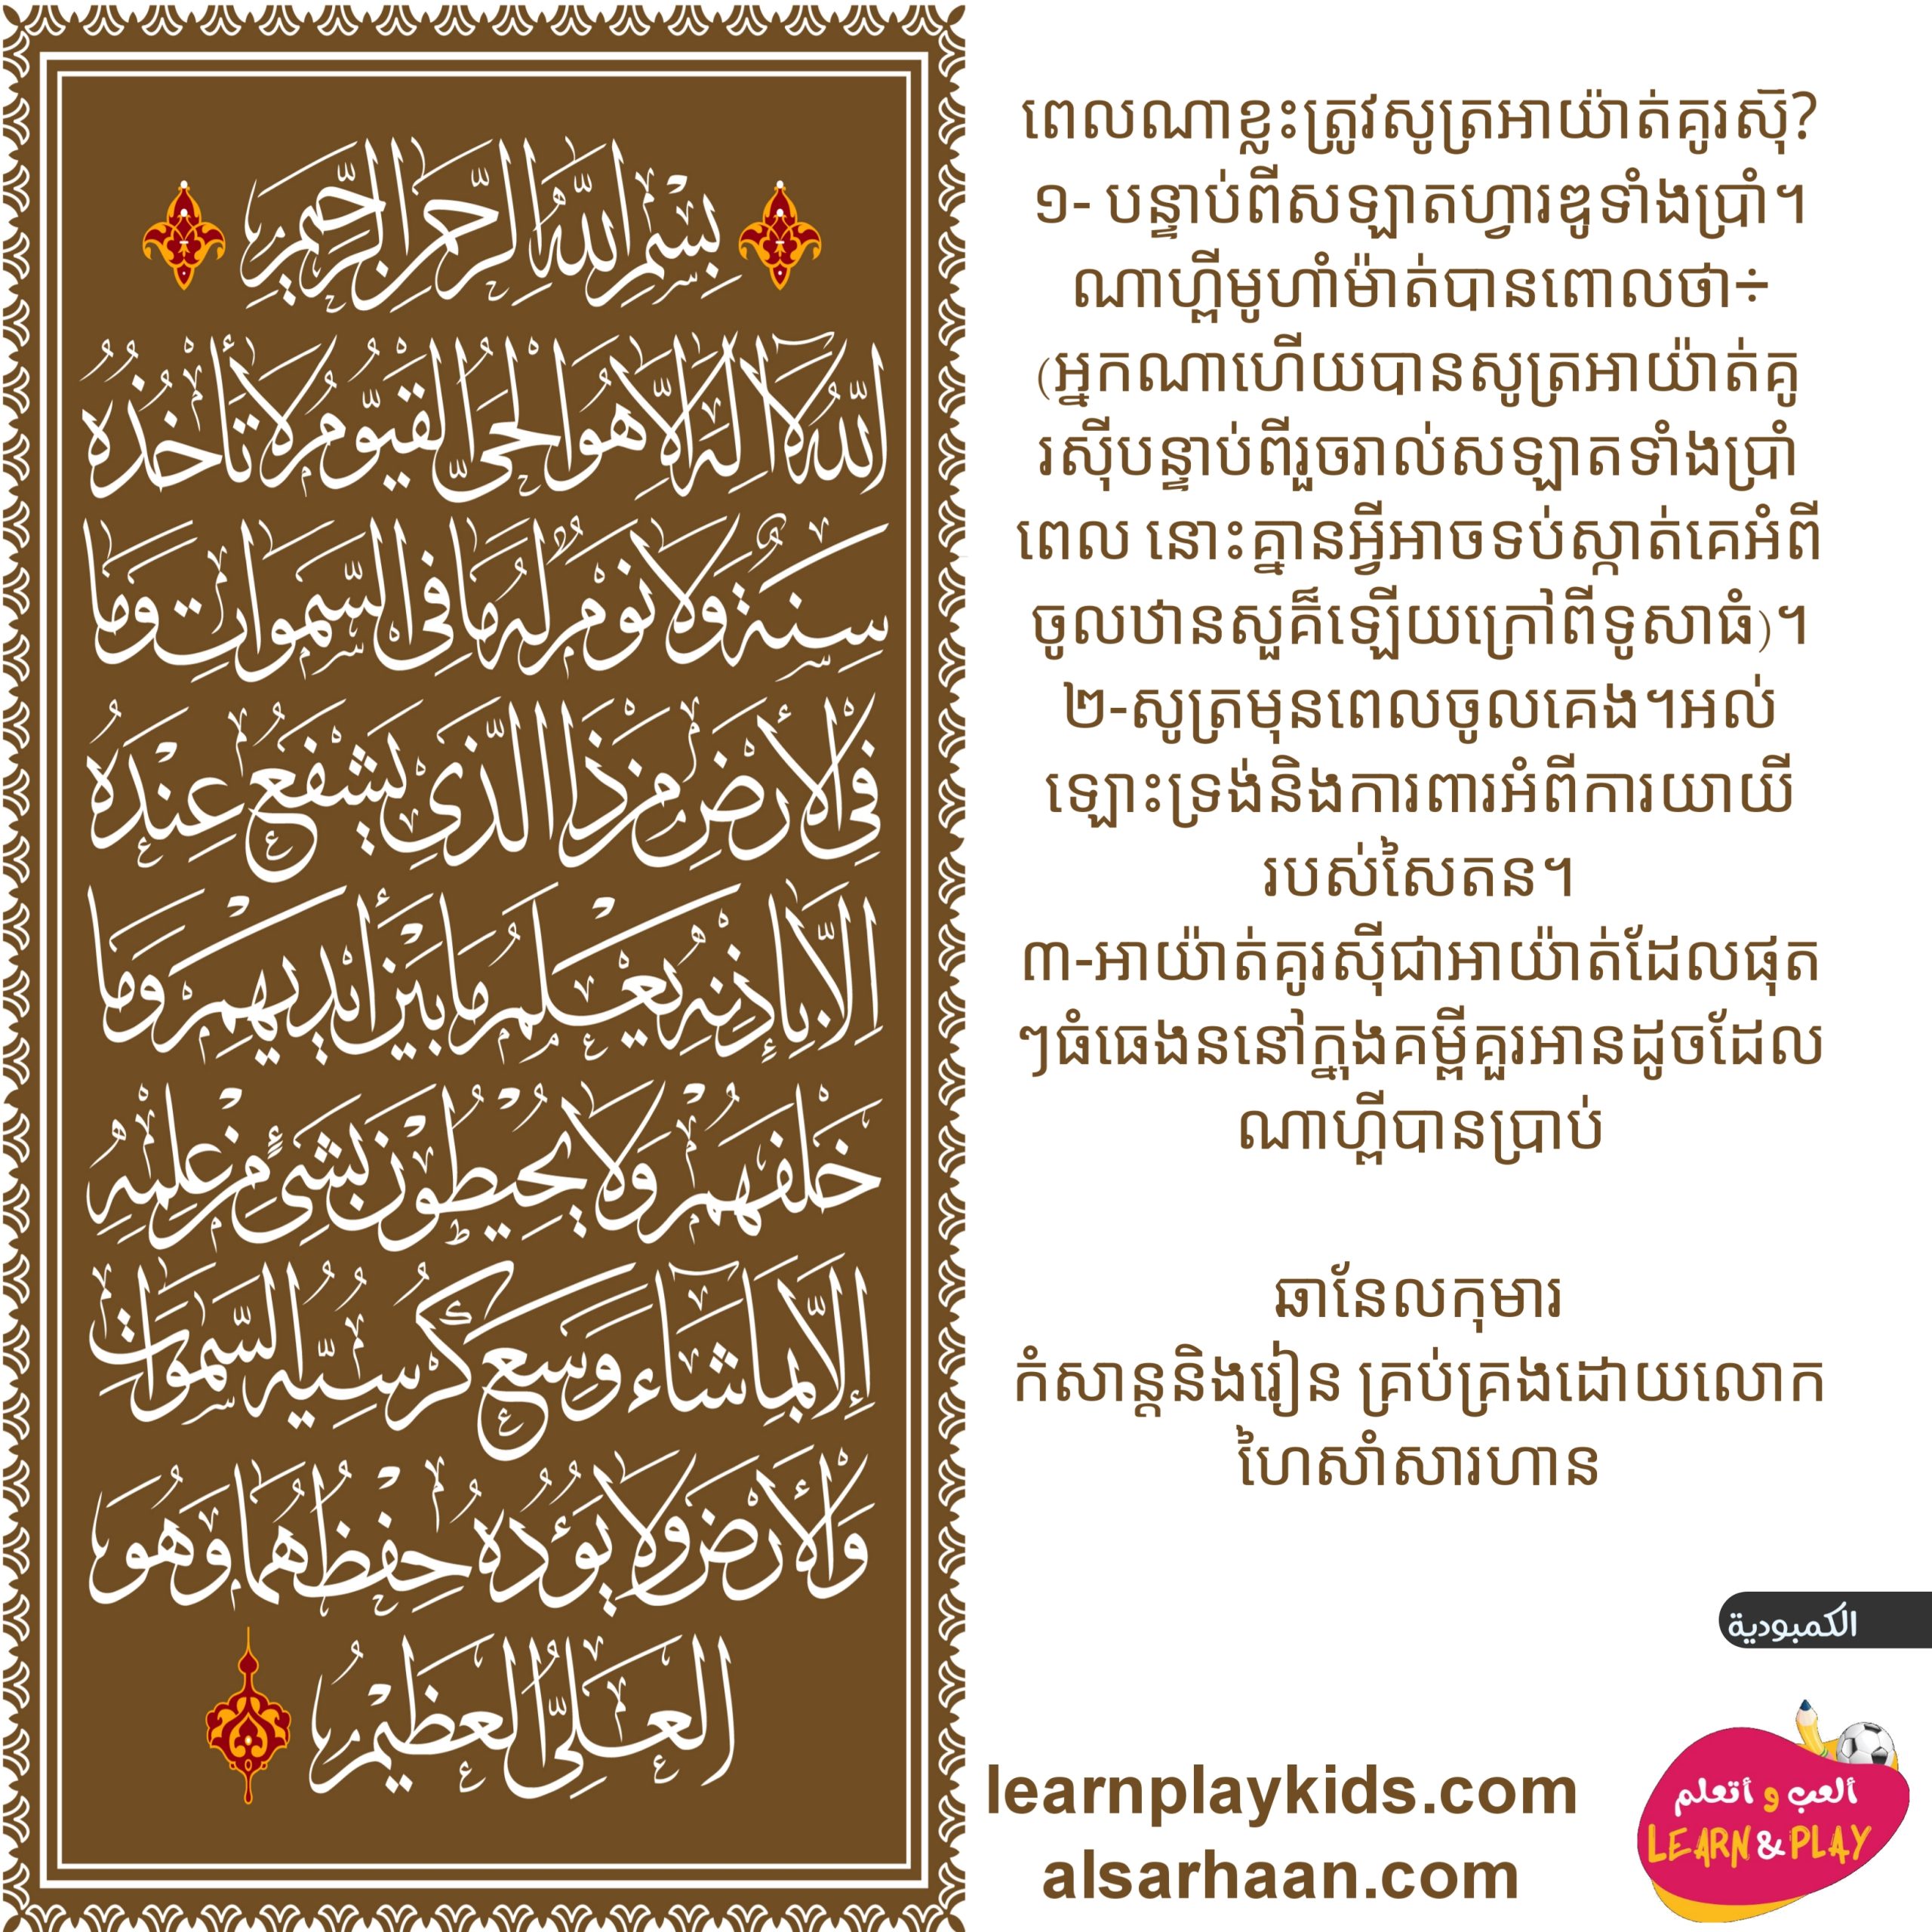 بِسْمِ اللَّهِ الرَّحْمَنِ الرَّحِيمِ
اللَّهُ لَا إِلَهَ إِلَّا هُوَ الْحَيُّ الْقَيُّومُ لَا تَأْخُذُهُ
سِنَةٌ وَلَا نَوْمٌ لَهُ مَا فِي السَّمَوَاتِ وَمَا
فِي الْأَرْضِ مَنْ ذَا الَّذِي يَشْفَعُ عِنْدَهُ
إِلَّا بِإِذْنِهِ يَعْلَمُ مَا بَيْنَ أَيْدِيهِمْ وَمَا
خَلْفَهُمْ وَلَا يُحِيطُونَ بِشَيْءٍ مِنْ عِلْمِهِ
إِلَّا بِمَا شَاءَ وَسِعَ كُرْسِيُّهُ السَّمَوَاتِ
وَالْأَرْضَ وَلَا يَؤُدُهُ حِفْظُهُمَا وَهُوَ
الْعَلِيُّ الْعَظِيمُ
ពេលណាខ្លះត្រូវសូត្រអាយ៉ាត់គូរស៊ី?
១- បន្ទាប់ពីសឡាតហ្វារឌូទាំងប្រាំ។
ណាហ្គីមូហាំម៉ាត់បានពោលថា÷
(អ្នកណាហើយបានសូត្រអាយ៉ាត់គូ
រស៊ីបន្ទាប់ពីរួចរាល់សឡាតទាំងប្រាំ
ពេល នោះគ្នានអ្វីអាចទប់ស្កាត់គេអំពី
ចូលឋានសួគ៌ឡើយក្រៅពីទូសាធំ)។
២-សូត្រមុនពេលចូលគេង។អល់
ឡោះទ្រង់និងការពារអំពីការយាយី
របស់សៃតន។
៣-អាយ៉ាត់គូរស៊ីជាអាយ៉ាត់ដែលផុត
ៗធំធេងនៅក្នុងគម្ពីគួរអានដូចដែល
ណាហ្គីបានប្រាប់
ឆានែលកុមារ
កំសាន្តនិងរៀន គ្រប់គ្រងដោយលោក
ហៃសាំសារហាន
الكمبودية
learnplaykids.com
alsarhaan.com
ألعب و أتعلم
LEARN & PLAY